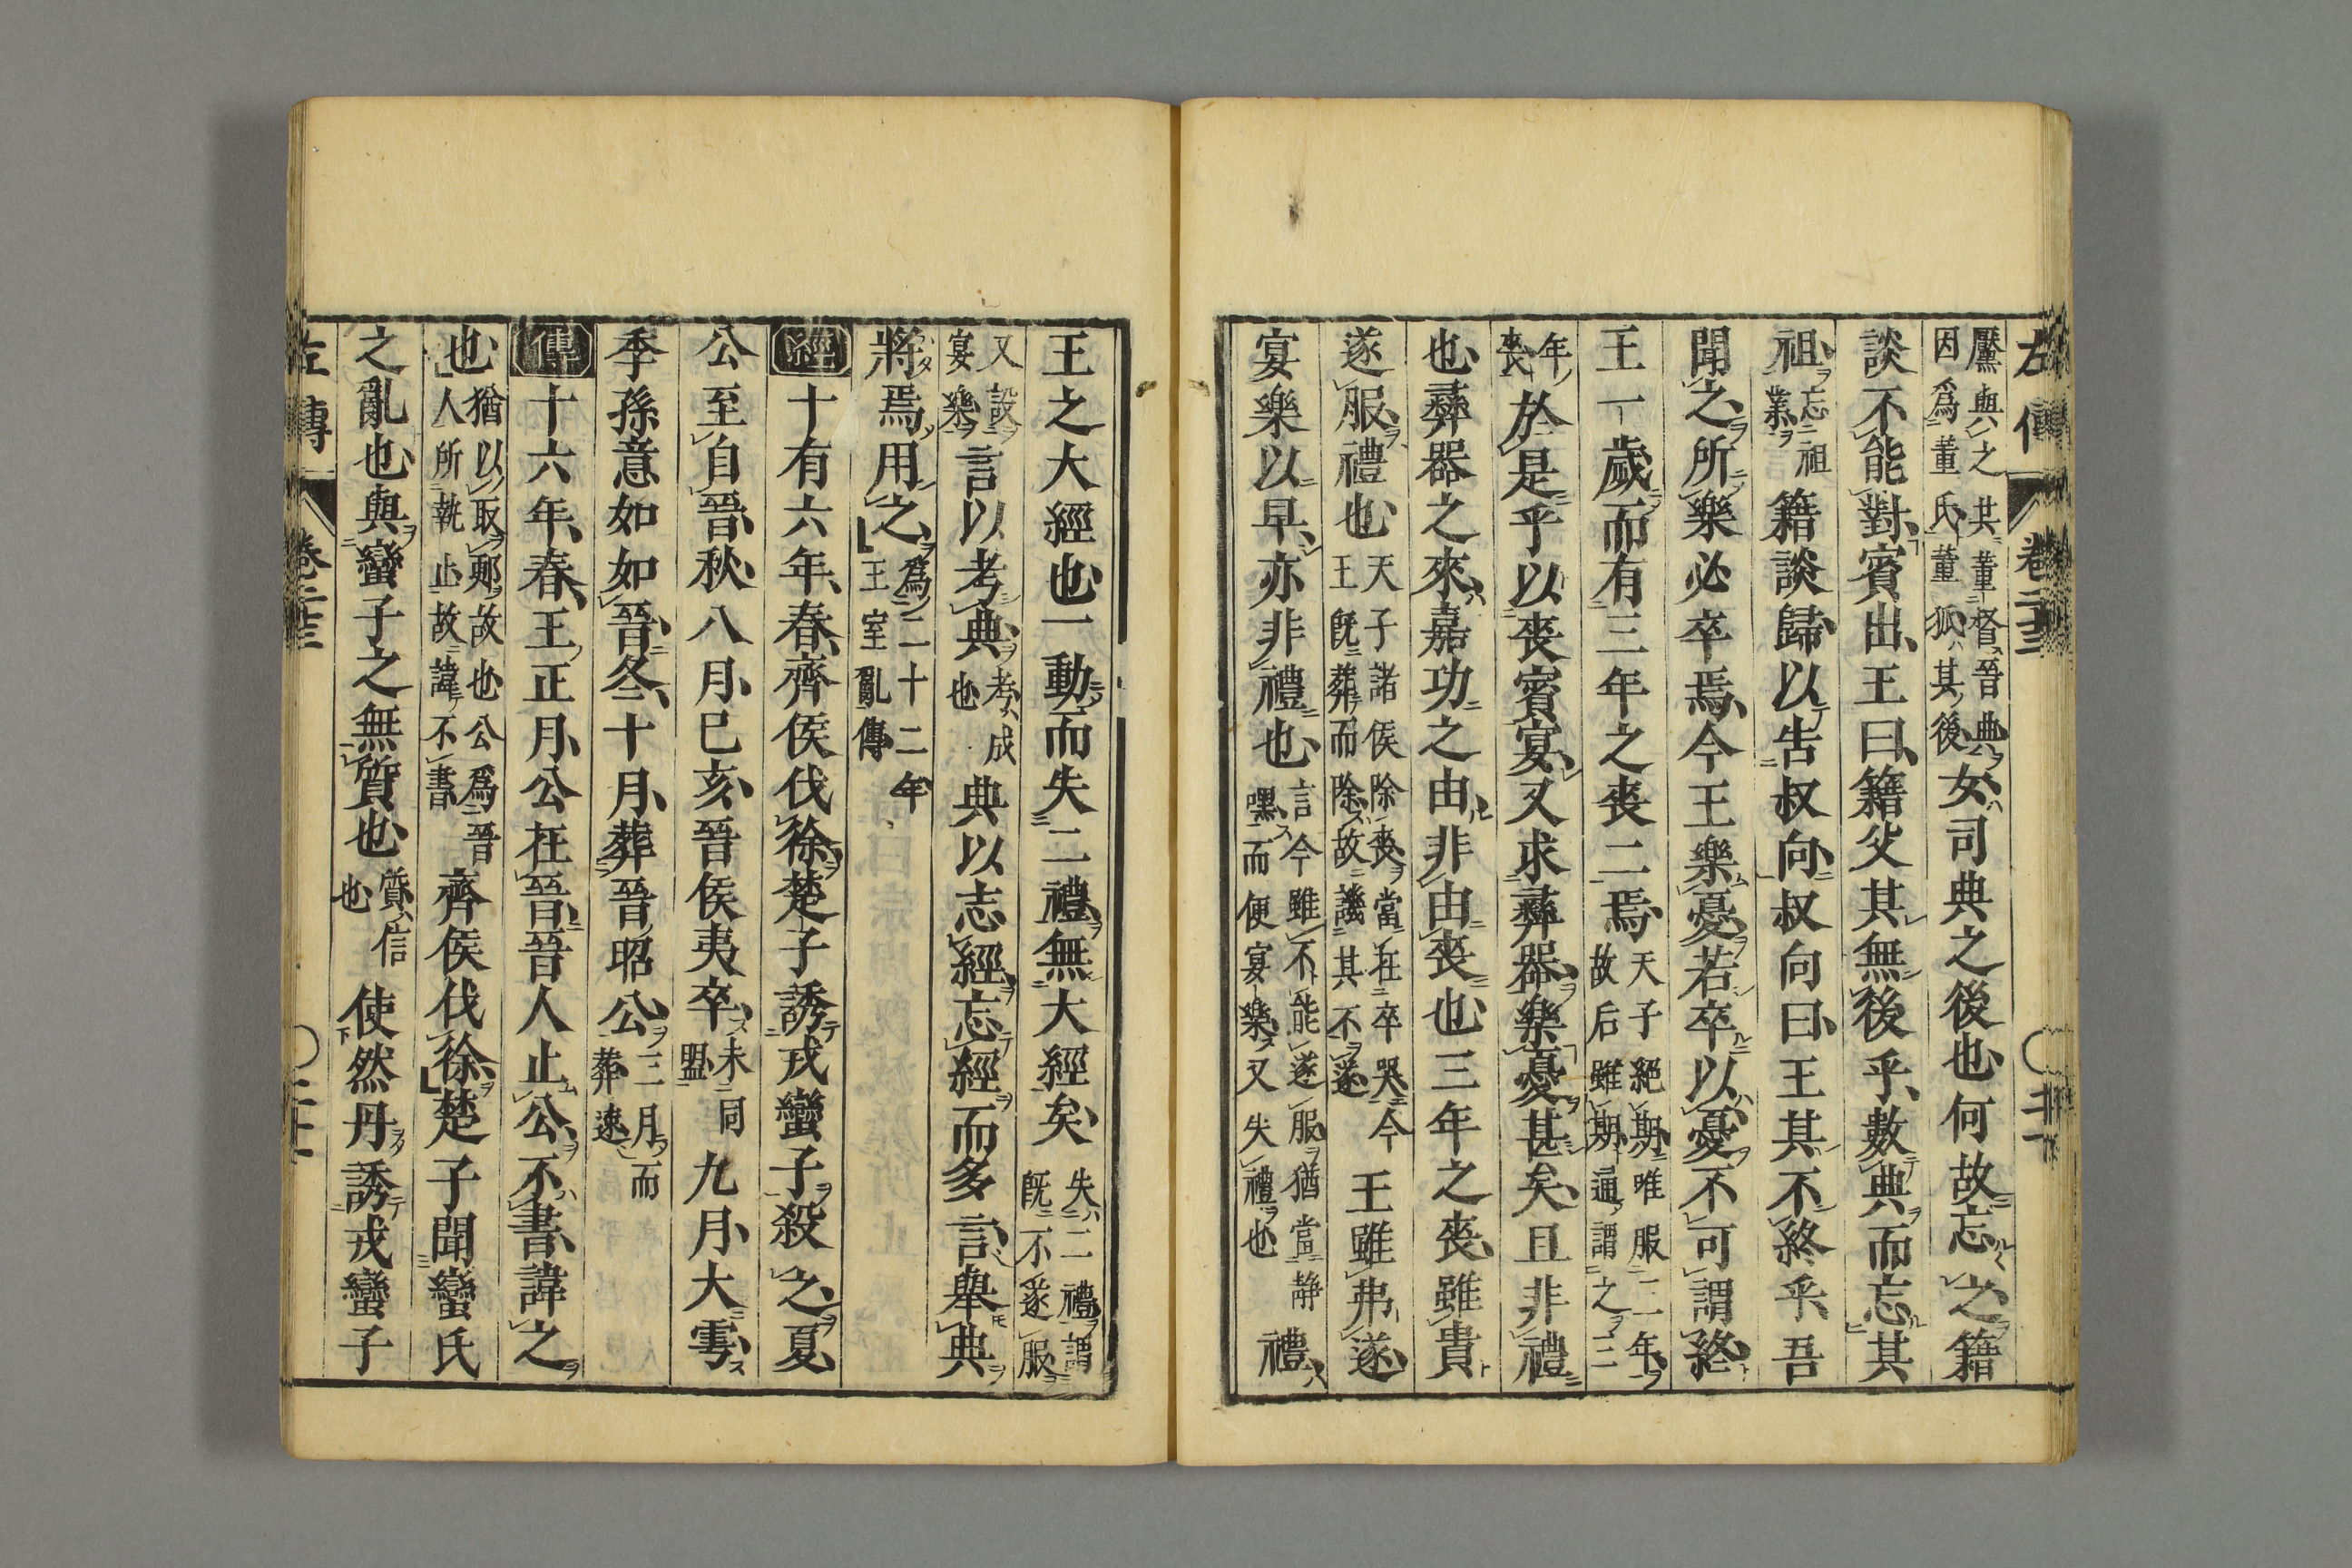 左傳 卷二十三
黶與之其董督晉典
因爲董氏董狐其後
女司典之後也何故忘之籍
談不能對賓出王曰籍父其無後乎數典而忘其
祖
忘祖
業
籍談歸以告叔向叔向曰王其不終乎吾
聞之所樂必卒焉今王樂憂若卒以憂不可謂終
王一歲而有三年之喪二焉
天子絕期唯服三年
故后雖期通謂之三
年
喪
於是乎以喪賓宴又求彝器樂憂甚矣且非禮
也彝器之來嘉功之由非由喪也三年之喪雖貴
遂服禮也
天子諸侯除喪當在卒哭今
王旣葬而除故譏其不遂
王雖弗遂
宴樂以早亦非禮也
言今雖不能遂服猶當靜
嘿而便宴樂又失禮也
禮
王之大經也一動而失二禮無大經矣
失二禮謂
旣不遂服
又設
宴樂
言以考典
考成
也
典以志經忘經而多言舉典
將焉用之
爲二十二年
王室亂傳
經十有六年春齊侯伐徐楚子誘戎蠻子殺之夏
公至自晉秋八月己亥晉侯夷卒
未同
盟
九月大雩
季孫意如如晉冬十月葬晉昭公
三月而
葬速
傳十六年春王正月公在晉晉人止公不書諱之
也
猶以取郠故也公爲晉
人所執止故諱不書
齊侯伐徐楚子聞蠻氏
之亂也與蠻子之無質也
質信
也
使然丹誘戎蠻子
左傳 卷二十三